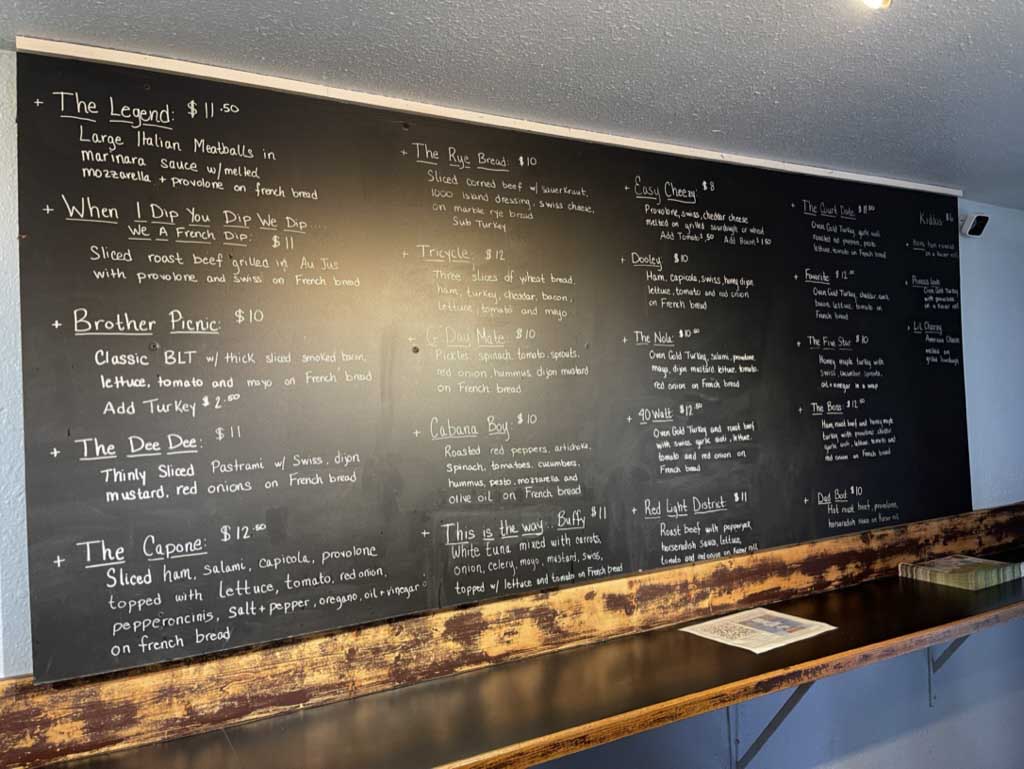 + The Legend: $11.50
Large Italian Meatballs in
marinara sauce w/ melted
mozzarella + provolone on french bread
+ When I Dip You Dip We Dip....
We A French Dip: $11
Sliced roast beef grilled in Au Jus
with provolone and Swiss on French bread
+ Brother Picnic: $10
Classic BLT w/ thick sliced smoked bacon,
lettuce, tomato and mayo on French bread
Add Turkey $2.50
+ The Dee Dee: $11
Thinly Sliced Pastrami w/ Swiss, dijon
mustard, red onions on French bread
+ The Capone: $12.50
Sliced ham, salami, capicola, provolone
topped with lettuce, tomato, red onion,
pepperoncinis, salt + pepper, oregano, oil + vinegar
on french bread
+ The Rye Bread: $10
Sliced corned beef w/ sauerkraut,
1000 island dressing, swiss cheese,
on marble rye bread
Sub Turkey
+ Tricycle: $12
Three slices of wheat bread,
ham, turkey, cheddar, bacon,
lettuce, tomato and mayo
+ G'Day Mate: $10
Pickles, spinach, tomato, sprouts,
red onion, hummus, dijon mustard
on French bread
+ Cabana Boy: $10
Roasted red peppers, artichoke,
spinach, tomatoes, cucumbers,
hummus, pesto, mozzarella and
olive oil on French bread
+ This is the way... Buffy $11
White tuna mixed with carrots,
onion, celery, mayo, mustard, swiss,
topped w/ lettuce and tomato on French bread
+ Easy Cheezy: $8
Provolone, swiss, cheddar cheese
melted on grilled sourdough or wheat
Add Tomato $.50 Add Bacon $1.50
+ Dooley: $10
Ham, capicola, swiss, honey dijon
lettuce, tomato and red onion
on French bread
+ The Nola:
Oven Gold Turkey, salami, provolone,
mayo, dijon mustard, lettuce, tomato,
red onion on French bread
+ 40 Watt:
Oven Gold Turkey and roast beef
with swiss, garlic aioli, lettuce,
tomato and red onion on
French bread
+ Red Light District: $11
Roast beef with pepperjack,
horseradish sauce, lettuce,
tomato and onion on Kaiser roll
+
Oven Gold Turkey, garlic
roasted red peppers, pesto,
lettuce, tomato on French bread
+ Favorite:
Oven Gold Turkey, cheddar,
bacon, lettuce, tomato on
French bread
+ The Five Star: $10
Honey maple turkey with
swiss, cucumber, sprouts,
oil + vinegar in a wrap
+ The Boss:
Ham, roast beef and honey maple
turkey with provolone, cheddar,
lettuce, tomato and
red onion on French bread
+ Dad Bod: $10
Hot roast beef, provolone,
horseradish sauce on Kaiser roll
Kiddos
+
on a Kaiser roll
+
Oven Gold Turkey
with provolone
on a Kaiser roll
+ Lil
American Cheese
melted on
grilled Sourdough